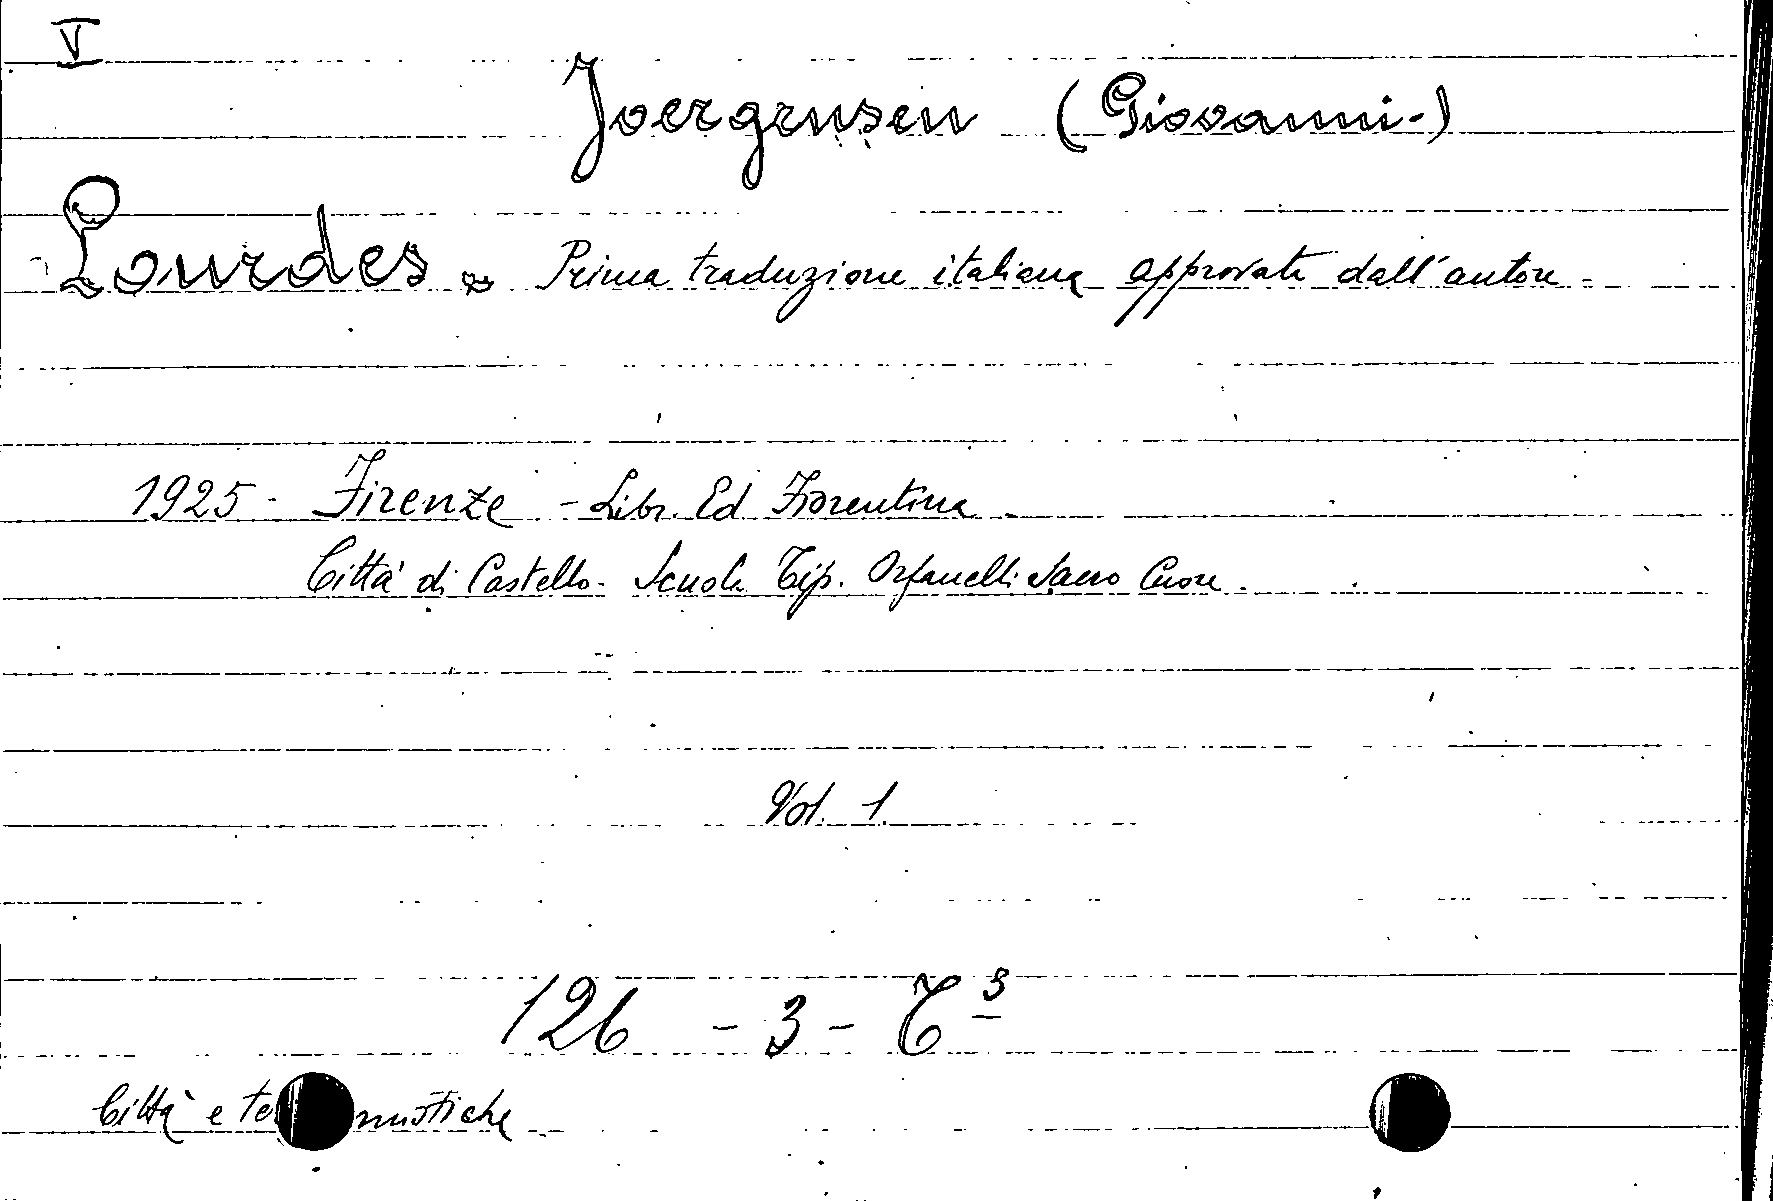 V
Joergensen (Giovanni-)
Lourdes. Prima traduzione italiana approvata dall'autore.
1925 - Firenze - Libr. Ed Fiorentina.
Città di Castello. Scuola Tip. Orfanelli Sacro Cuore.
Vol. 1.
126 - 3 -
Città e mistiche